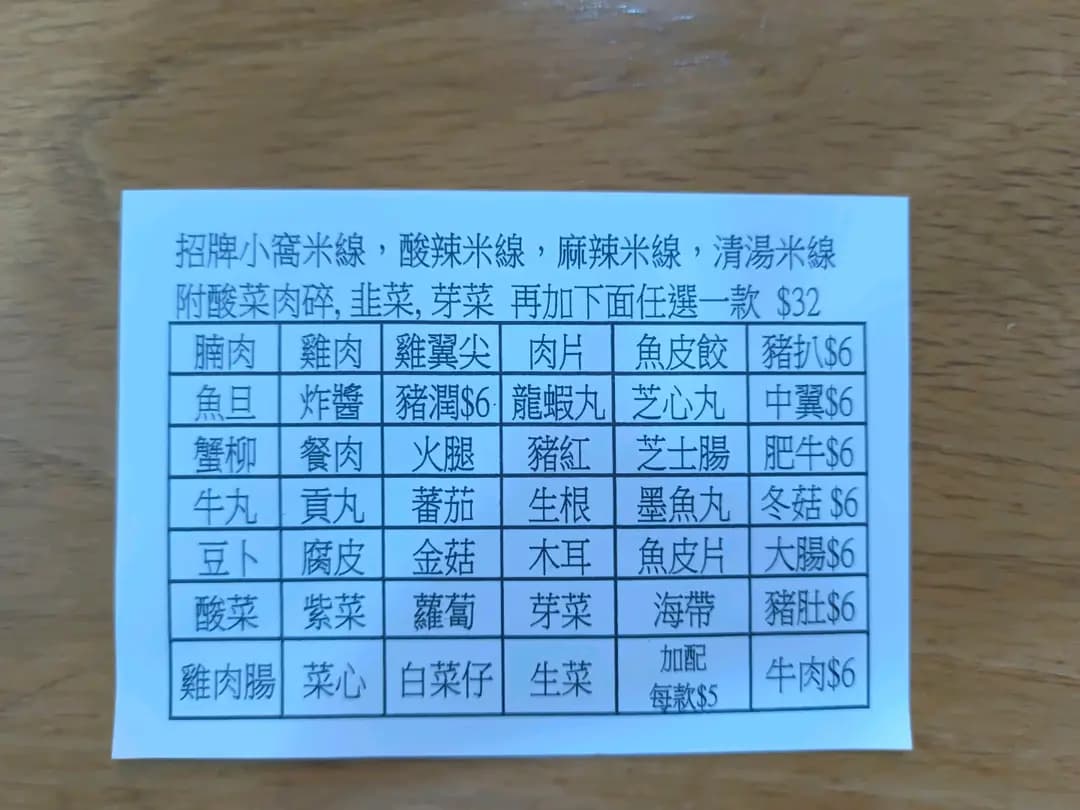 招牌小窩米線，酸辣米線，麻辣米線，清湯米線
附酸菜肉碎, 韭菜, 芽菜 再加下面任選一款 $32
腩肉 雞肉 雞翼尖 肉片 魚皮餃 豬扒$6
魚旦 炸醬 豬潤$6 龍蝦丸 芝心丸 中翼$6
蟹柳 餐肉 火腿 豬紅 芝士腸 肥牛$6
牛丸 貢丸 蕃茄 生根 墨魚丸 冬菇 $6
豆卜 腐皮 金菇 木耳 魚皮片 大腸$6
酸菜 紫菜 蘿蔔 芽菜 海帶 豬肚$6
雞肉腸 菜心 白菜仔 生菜 加配 牛肉$6
每款$5